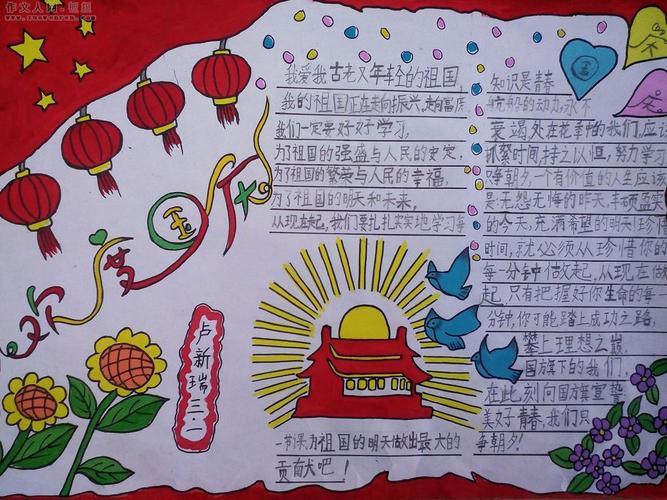 作文人网·恒组
www.zuowenren.com
欢度国庆
卢新瑞三.
我爱我古老又年轻的祖国,
我的祖国正在走向振兴,走向富庶
我们一定要好好学习,
为了祖国的强盛与人民的安定,
为了祖国的繁荣与人民的幸福,
为了祖国的明天和未来,
从现在起,我们要扎扎实实地学习每
一节课,为祖国的明天做出最大的
贡献吧!
知识是青春
的动力,永不
衰竭,处在花季的我们,应
抓紧时间,持之以恒,努力学习
争朝夕,一个有价值的人生应该
是:无怨无悔的昨天,丰硕盈实
的今天,充满希望的明天!珍惜
时间,就必须从珍惜你的
每一分钟做起,从现在做
起,只有把握好你生命的每一
分钟,你可能踏上成功之路,
攀上理想之巅.
国旗下的我们,
在此刻向国旗宣誓
美好青春,我们只
争朝夕!